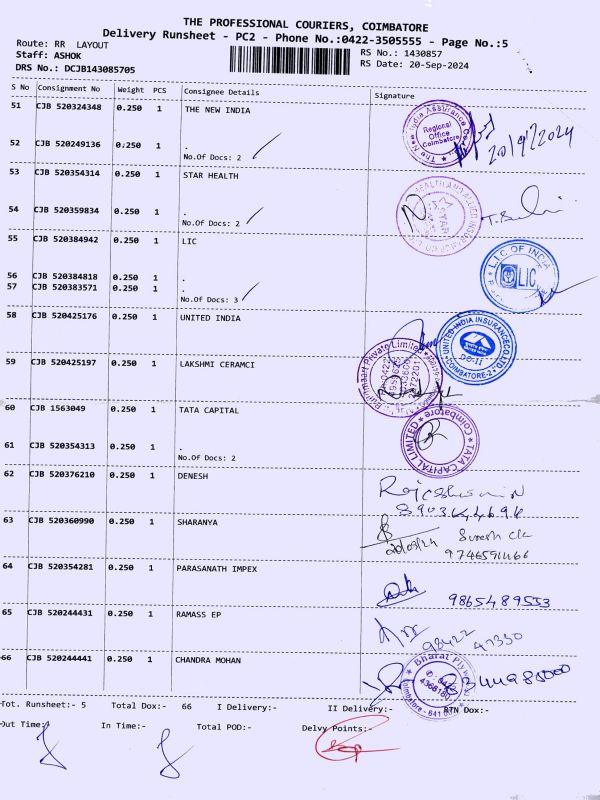 THE PROFESSIONAL COURIERS, COIMBATORE
Delivery Runsheet - PC2 - Phone No.:0422-3505555 - Page No.:5
Route: RR LAYOUT
Staff: ASHOK
DRS No.: DCJB143085705
RS No.: 1430857
RS Date: 20-Sep-2024
S No Consignment No Weight PCS Consignee Details Signature
51 CJB 520324348 0.250 1 THE NEW INDIA
Regional Office Coimbatore
20/9/2024
52 CJB 520249136 0.250 1 .
No.Of Docs: 2
53 CJB 520354314 1 STAR HEALTH
STAR
54 CJB 520359834 0.250 1 .
No.Of Docs: 2
55 CJB 520384942 0.250 1 LIC
L.I.C OF INDIA
LIC
56 CJB 520384818 0.250 1 .
57 CJB 520383571 0.250 1 .
No.Of Docs: 3
58 CJB 520425176 0.250 1 UNITED INDIA
UNITED INDIA INSURANCE CO.LTD
COIMBATORE-2
59 CJB 520425197 0.250 1 LAKSHMI CERAMCI
Private Limited
60 CJB 1563049 0.250 1 TATA CAPITAL
TATA CAPITAL LIMITED
Coimbatore
61 CJB 520354313 0.250 1 .
No.Of Docs: 2
62 CJB 520376210 0.250 1 DENESH
63 CJB 520360990 0.250 1 SHARANYA
20/09/24
64 CJB 520354281 0.250 1 PARASANATH IMPEX
9865489553
65 CJB 520244431 0.250 1 RAMASS EP
98422 47330
66 CJB 520244441 0.250 1 CHANDRA MOHAN
Bharat
Tot. Runsheet:- 5 Total Dox:- 66 I Delivery:- II Delivery:- RTN Dox:-
Out Time:- In Time:- Total POD:- Delvy Points:-